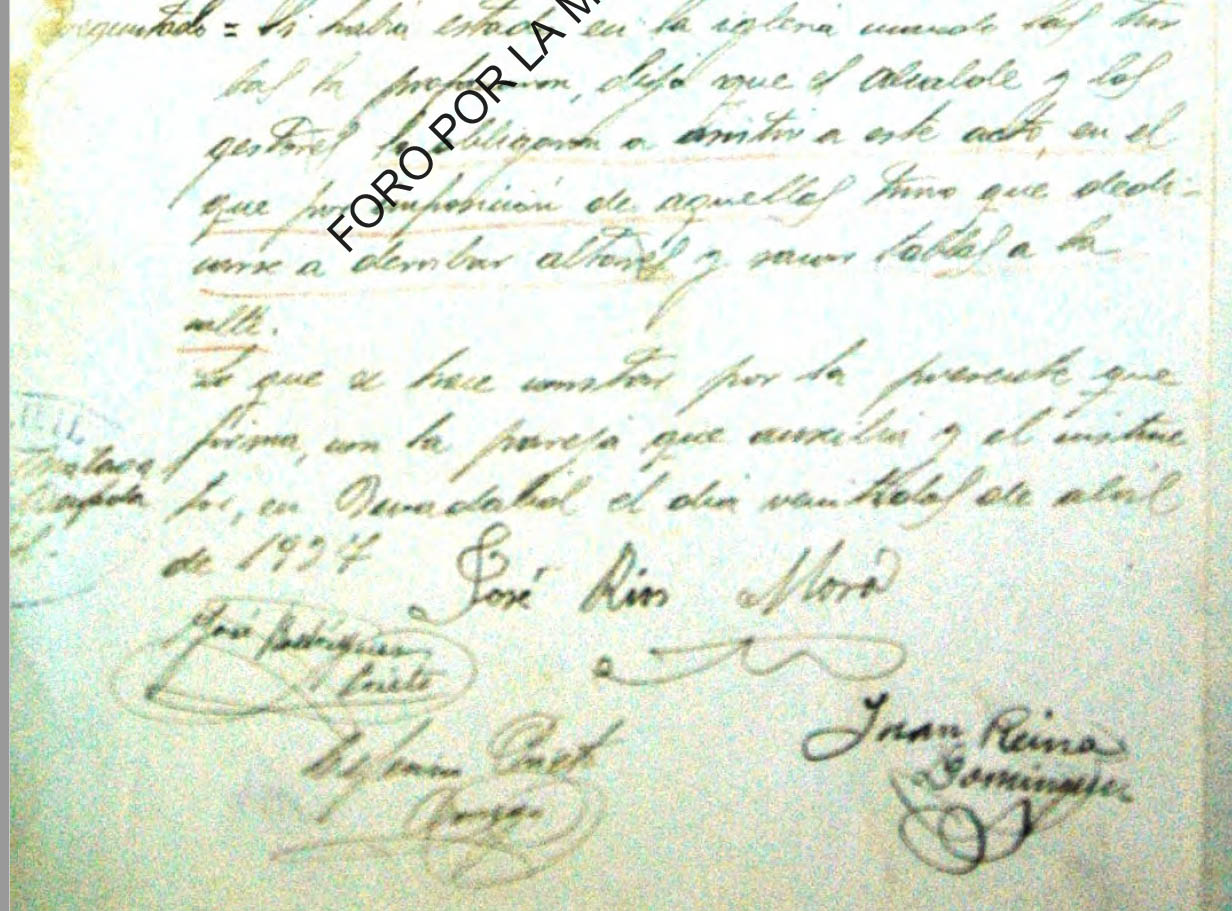 Preguntado = Si había estado en la iglesia cuando las tur
bas la profanaron, dijo que el alcalde y los
gestores le obligaron a asistir a este acto, en el
que por imposición de aquellos tuvo que dedi-
carse a derribar altares y sacar tablas a la
calle.
Lo que se hace constar por la presente que
firma, con la pareja que auxilia y el instruc
tor, en Benadalid el día veintidos de abril
de 1937
José Rios Mora
José Rodríguez
Prieto
Juan Reina
Dominguez
FORO POR LA M